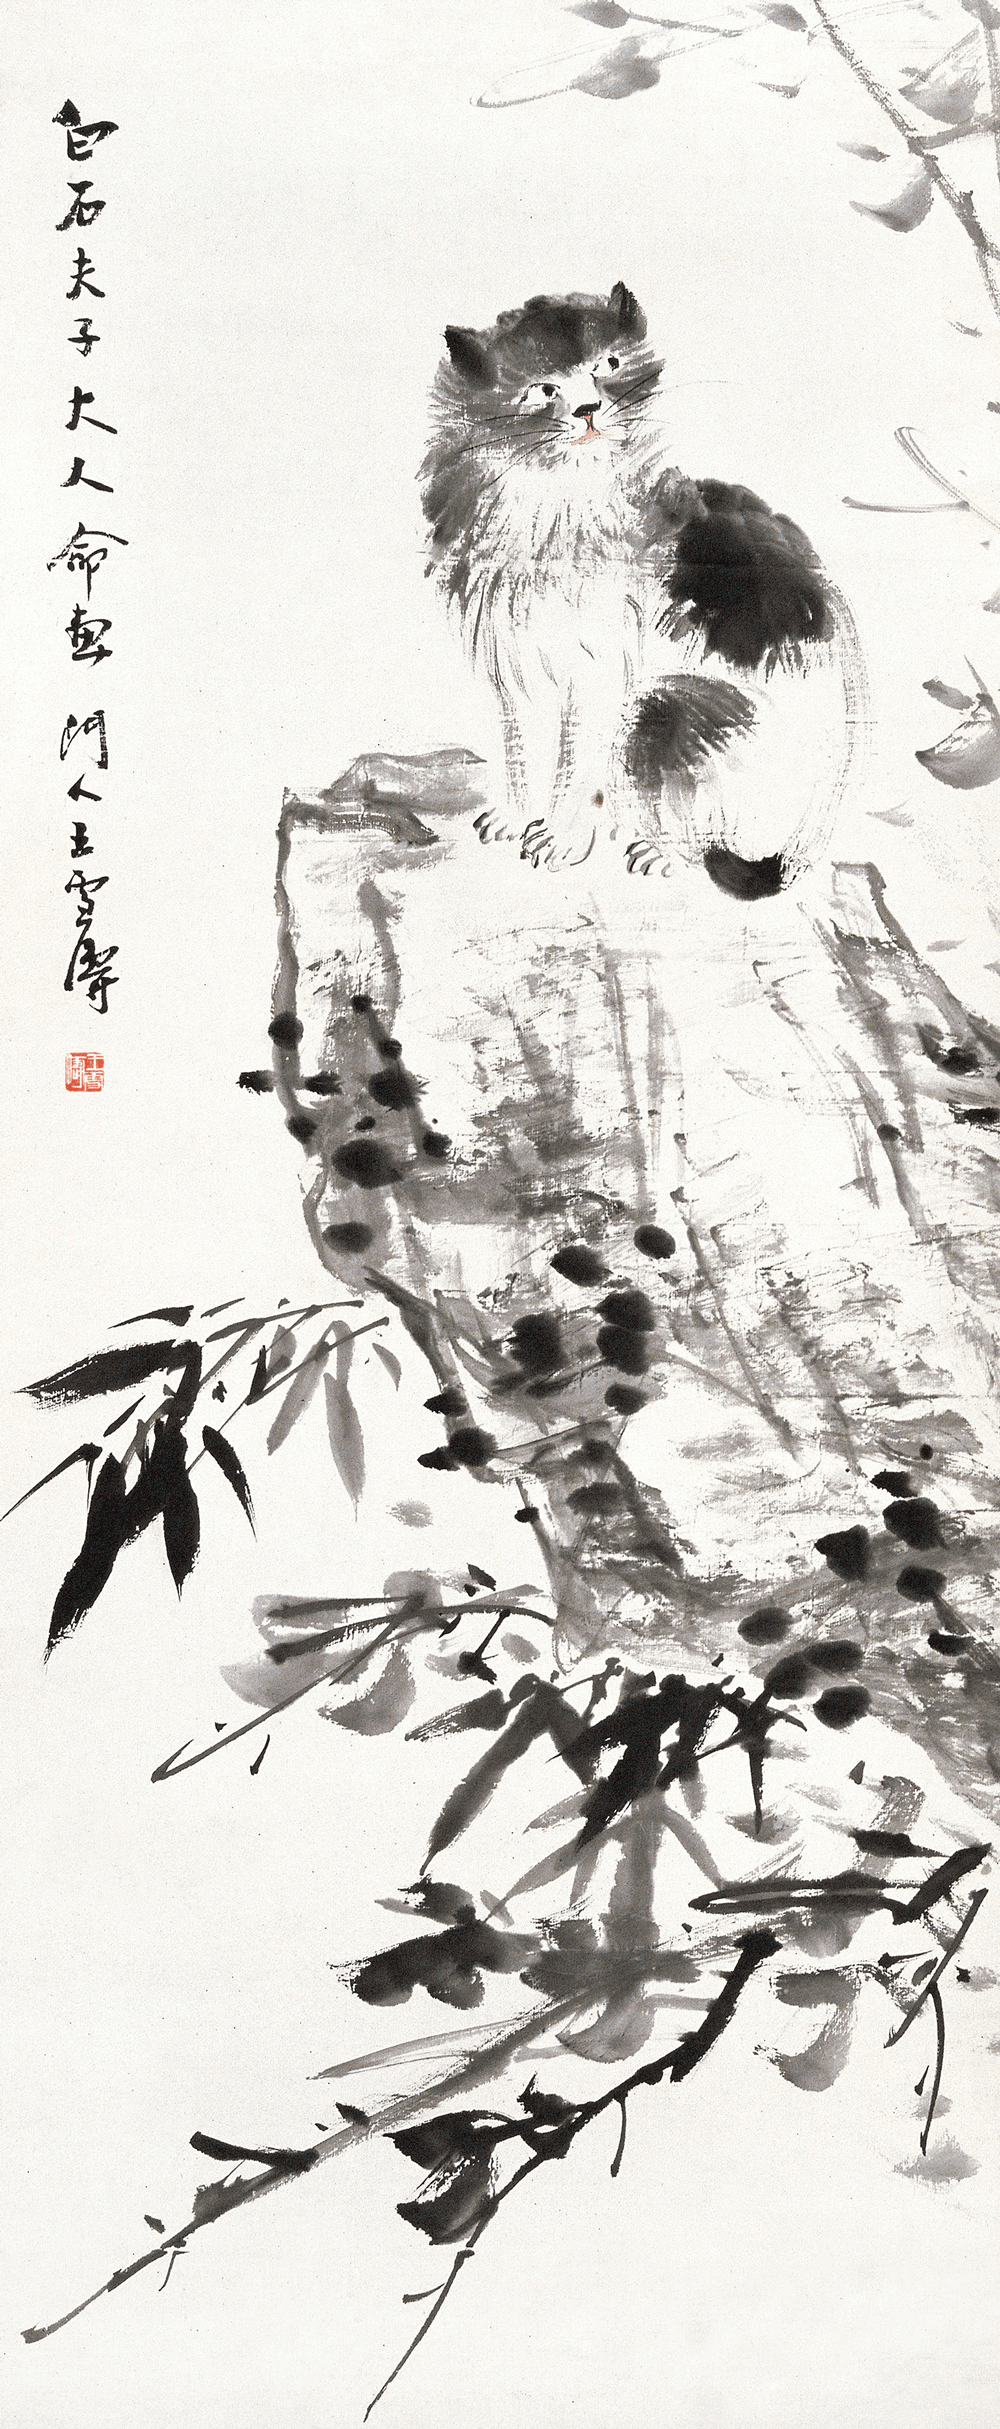 白石夫子大人命画 门人王雪涛
王雪涛